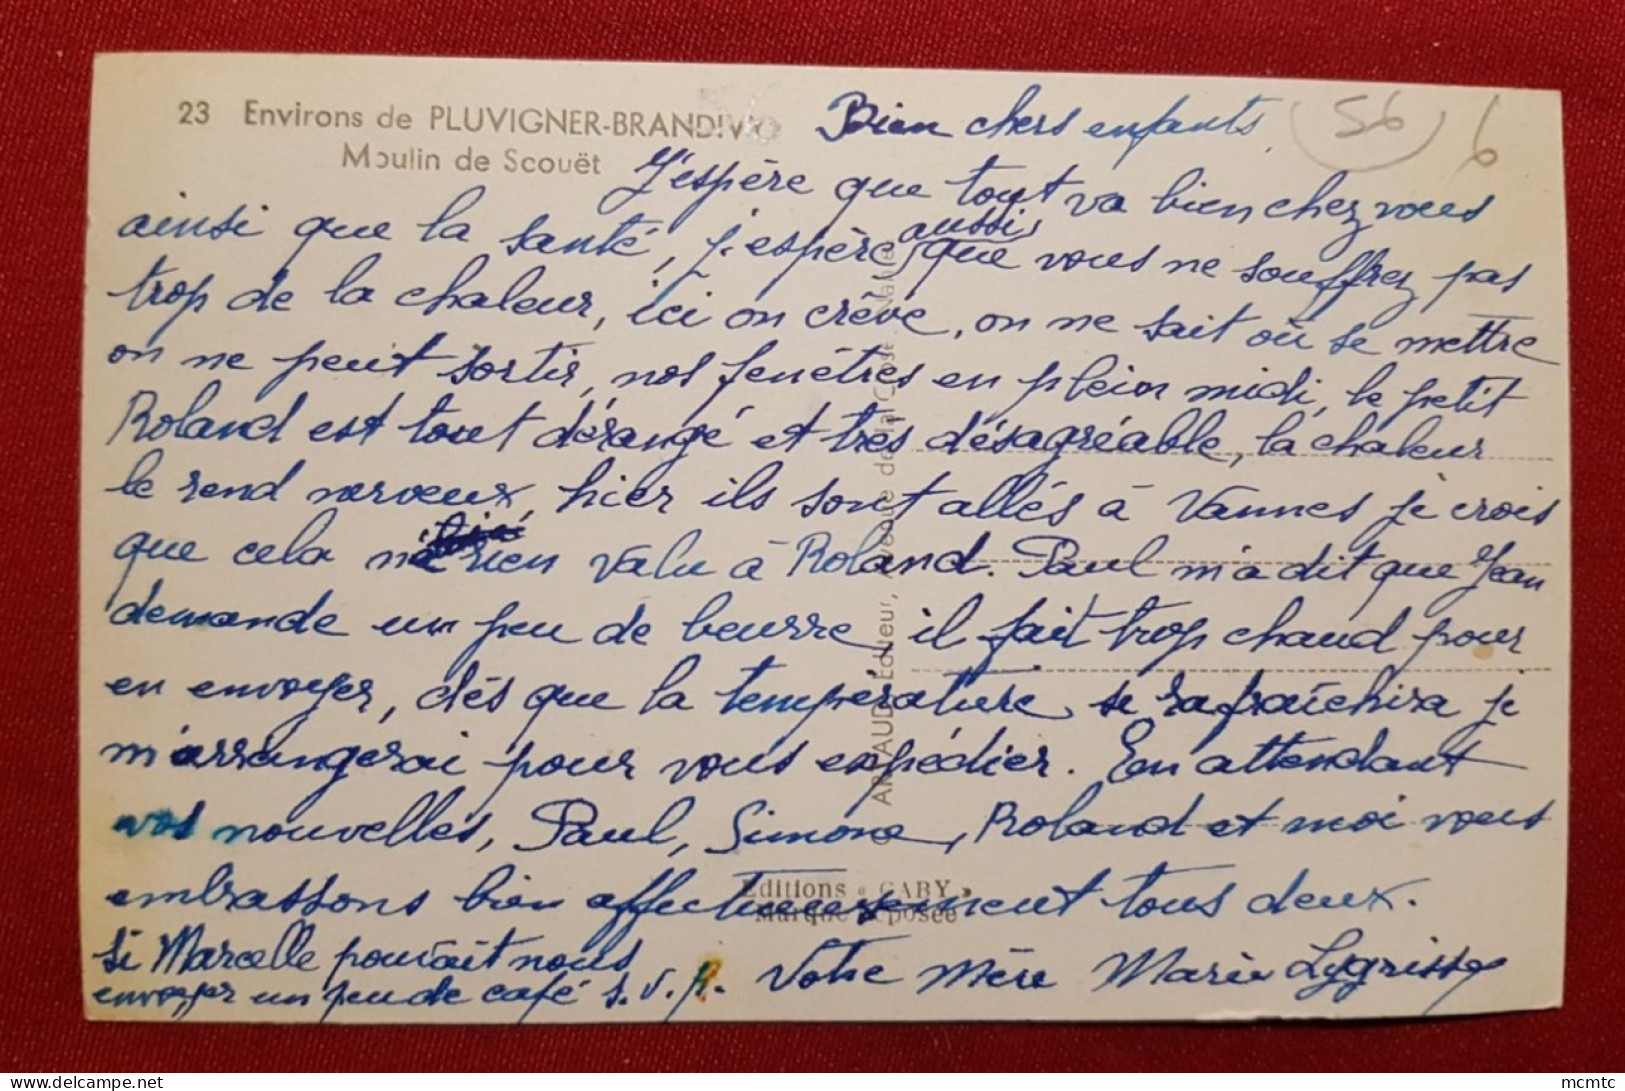 23 Environs de PLUVIGNER-BRANDIVY
Moulin de Scouët
56
6
Bien chers enfants
J'espère que tout va bien chez vous
ainsi que la santé, j'espère aussi que vous ne souffrez pas
trop de la chaleur, ici on crève, on ne sait où se mettre
on ne peut sortir, nos fenêtres en plein midi, le petit
Roland est tout dérangé et très désagréable, la chaleur
le rend nerveux, hier ils sont allés à Vannes je crois
que cela n'a rien valu à Roland. Paul m'a dit que Jean
demande un peu de beurre il fait trop chaud pour
en envoyer, dés que la température se rafraîchira je
m'arrangerai pour vous expédier. En attendant
vos nouvelles, Paul, Simone, Roland et moi vous
embrassons bien affectueusement tous deux.
si Marcelle pouvait nous
envoyer un peu de café s.v.p.
Votre Mère Marie
ARTAUD Editeur, Avenue de la Close, Nantes
Editions « GABY »
Marque déposée
delcampe.net
mcmtc